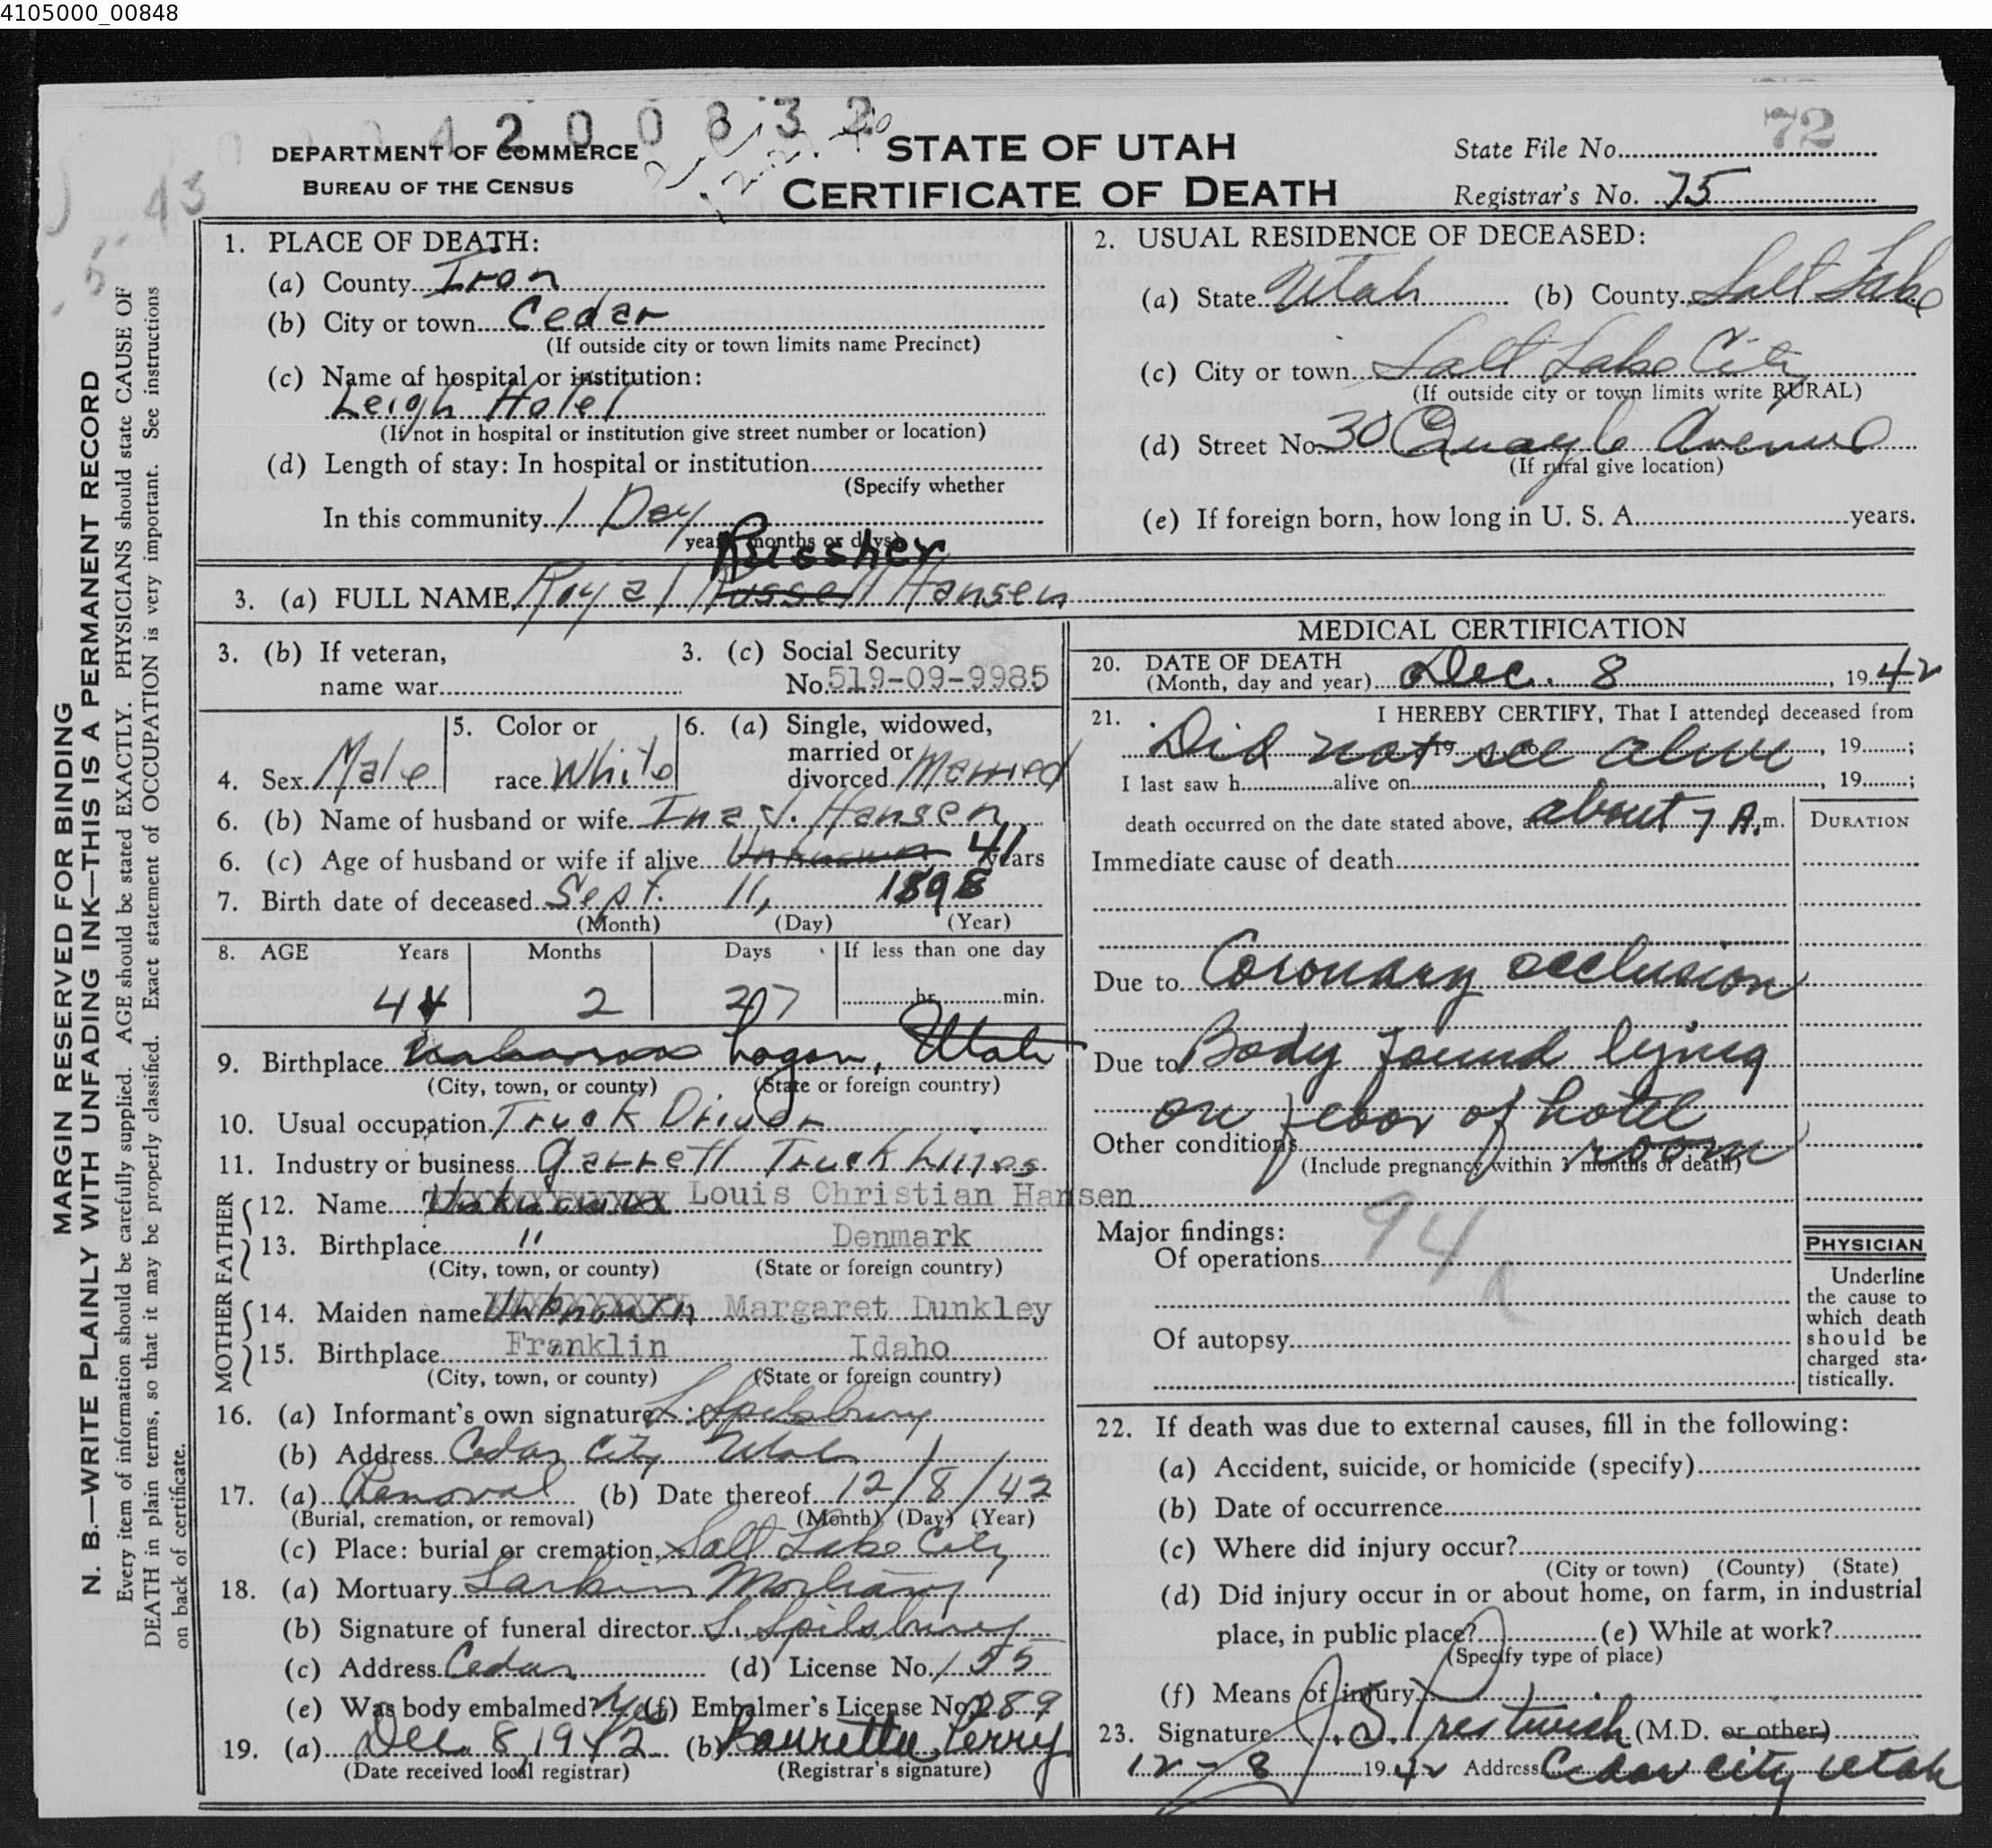 4105000_00848
4 2 0 0 8 3 2
72
DEPARTMENT OF COMMERCE
BUREAU OF THE CENSUS
STATE OF UTAH
CERTIFICATE OF DEATH
State File No.
Registrar's No. 75
43
MARGIN RESERVED FOR BINDING
N. B.—WRITE PLAINLY WITH UNFADING INK—THIS IS A PERMANENT RECORD
Every item of information should be carefully supplied. AGE should be stated EXACTLY. PHYSICIANS should state CAUSE OF
DEATH in plain terms, so that it may be properly classified. Exact statement of OCCUPATION is very important. See instructions
on back of certificate.
1. PLACE OF DEATH:
(a) County Iron
(b) City or town Cedar
(If outside city or town limits name Precinct)
(c) Name of hospital or institution:
Leigh Hotel
(If not in hospital or institution give street number or location)
(d) Length of stay: In hospital or institution
(Specify whether
In this community 1 Day
years, months or days)
2. USUAL RESIDENCE OF DECEASED:
(a) State Utah (b) County Salt Lake
(c) City or town Salt Lake City
(If outside city or town limits write RURAL)
(d) Street No. 30 Quayle Avenue
(If rural give location)
(e) If foreign born, how long in U. S. A. years.
Russher
3. (a) FULL NAME Royal Russell Hansen
3. (b) If veteran, name war
3. (c) Social Security No. 519-09-9985
4. Sex Male
5. Color or race White
6. (a) Single, widowed, married or divorced Married
6. (b) Name of husband or wife Ina J. Hansen
6. (c) Age of husband or wife if alive Unknown 41 years
7. Birth date of deceased Sept. 11, 1898
(Month) (Day) (Year)
8. AGE Years Months Days If less than one day
44 2 27 hr. min.
9. Birthplace Logan, Utah
(City, town, or county) (State or foreign country)
10. Usual occupation Truck Driver
11. Industry or business Garrett Truck Lines
FATHER
12. Name Unknown Louis Christian Hansen
13. Birthplace " Denmark
(City, town, or county) (State or foreign country)
MOTHER
14. Maiden name Unknown Margaret Dunkley
15. Birthplace Franklin Idaho
(City, town, or county) (State or foreign country)
16. (a) Informant's own signature L. Spilsbury
(b) Address Cedar City Utah
17. (a) Removal (b) Date thereof 12/8/42
(Burial, cremation, or removal) (Month) (Day) (Year)
(c) Place: burial or cremation Salt Lake City
18. (a) Mortuary Larkin Mortuary
(b) Signature of funeral director L. Spilsbury
(c) Address Cedar (d) License No. 155
(e) Was body embalmed? Yes (f) Embalmer's License No. 289
19. (a) Dec. 8, 1942 (b) Laurettu Perry
(Date received local registrar) (Registrar's signature)
MEDICAL CERTIFICATION
20. DATE OF DEATH
(Month, day and year) Dec. 8, 1942
21. I HEREBY CERTIFY, That I attended deceased from
Did not see alive, 19 ;
I last saw h alive on , 19 ;
death occurred on the date stated above, at about 7 A.m.
DURATION
Immediate cause of death
Due to Coronary occlusion
Due to Body found lying
on floor of hotel
Other conditions room
(Include pregnancy within 3 months of death)
94 a
Major findings:
Of operations
Of autopsy
PHYSICIAN
Underline
the cause to
which death
should be
charged sta-
tistically.
22. If death was due to external causes, fill in the following:
(a) Accident, suicide, or homicide (specify)
(b) Date of occurrence
(c) Where did injury occur?
(City or town) (County) (State)
(d) Did injury occur in or about home, on farm, in industrial
place, in public place? (e) While at work?
(Specify type of place)
(f) Means of injury
23. Signature J. S. Prestwich (M.D. or other)
12-8 1942 Address Cedar City Utah